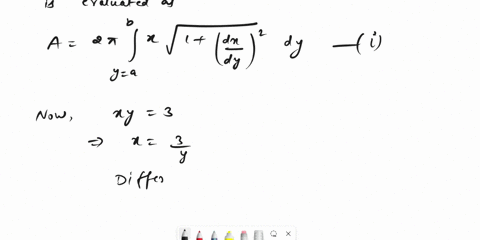 is evaluated as
A = 2π ∫_{y=a}^{b} x √(1 + (dx/dy)²) dy —(i)
Now, xy = 3
⇒ x = 3/y
Differ